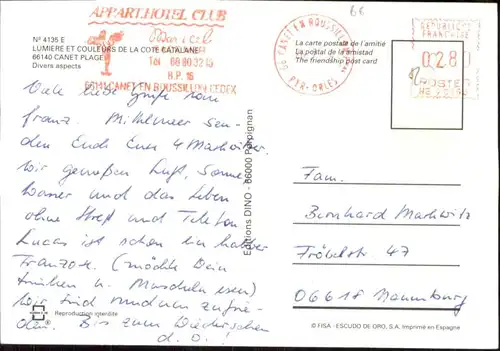 APPART.HOTEL CLUB
Maricel
Tél 68.80.32.15
B.P. 16
66141 CANET EN ROUSSILLON CEDEX
66
CANET EN ROUSSILLON
PYR-ORLES
REPUBLIQUE
FRANCAISE
02,80
POSTES
Nº 4135 E
LUMIERE ET COULEURS DE LA COTE CATALANE
66140 CANET PLAGE
Divers aspects
La carte postale de l'amitié
La postal de la amistad
The friendship post card
Viele liebe Grüße vom
franz. Mittelmeer sen-
den Euch Eure 4 Markwitzer.
Wir genießen Luft, Sonne
Wasser und das Leben
ohne Streß und Telefon
Lucas ist schon ein halber
Franzose. (möchte Wein
trinken u. Muscheln essen)
Wir sind rundrum zufrie-
den. Bis zum Wiedersehen
d. O.!
Editions DINO - 66000 Perpignan
Fam.
Bernhard Markwitz
Fröbelstr. 47
06618 Naumburg
Reproduction interdite
© FISA - ESCUDO DE ORO, S.A. Imprimé en Espagne